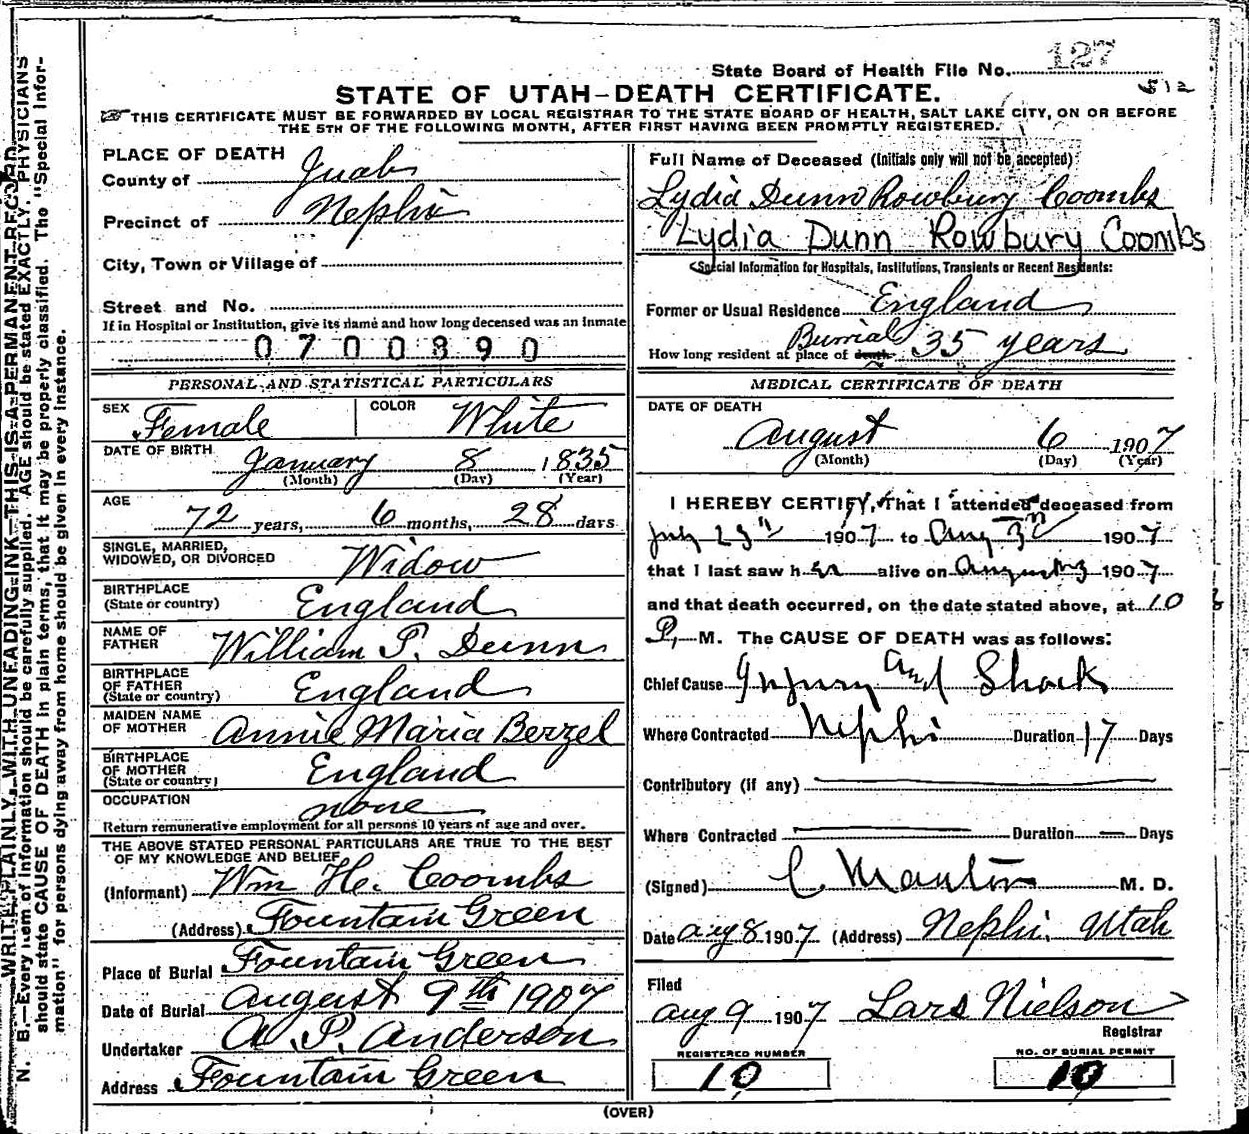 State Board of Health File No. 127
512
STATE OF UTAH-DEATH CERTIFICATE.
THIS CERTIFICATE MUST BE FORWARDED BY LOCAL REGISTRAR TO THE STATE BOARD OF HEALTH, SALT LAKE CITY, ON OR BEFORE
THE 5TH OF THE FOLLOWING MONTH, AFTER FIRST HAVING BEEN PROMPTLY REGISTERED.
WRITE PLAINLY WITH UNFADING INK—THIS IS A PERMANENT RECORD.
N. B.—Every item of information should be carefully supplied. AGE should be stated EXACTLY. PHYSICIANS
should state CAUSE OF DEATH in plain terms, that it may be properly classified. The "Special Infor-
mation" for persons dying away from home should be given in every instance.
PLACE OF DEATH
County of Juab
Precinct of Nephi
City, Town or Village of
Street and No.
If in Hospital or Institution, give its name and how long deceased was an inmate
0700890
PERSONAL AND STATISTICAL PARTICULARS
SEX Female COLOR White
DATE OF BIRTH January 8 1835
(Month) (Day) (Year)
AGE
72 years, 6 months, 28 days
SINGLE, MARRIED,
WIDOWED, OR DIVORCED Widow
BIRTHPLACE
(State or country) England
NAME OF
FATHER William P. Dunn
BIRTHPLACE
OF FATHER
(State or country) England
MAIDEN NAME
OF MOTHER Annie Maria Berzel
BIRTHPLACE
OF MOTHER
(State or country) England
OCCUPATION none
Return remunerative employment for all persons 10 years of age and over.
THE ABOVE STATED PERSONAL PARTICULARS ARE TRUE TO THE BEST
OF MY KNOWLEDGE AND BELIEF
(Informant) Wm He. Coombs
(Address) Fountain Green
Place of Burial Fountain Green
Date of Burial August 9th 1907
Undertaker A. P. Anderson
Address Fountain Green
Full Name of Deceased (Initials only will not be accepted)
Lydia Dunn Rowbury Coombs
Lydia Dunn Rowbury Coombs
Special Information for Hospitals, Institutions, Transients or Recent Residents:
Former or Usual Residence England
Burial
How long resident at place of death 35 years
MEDICAL CERTIFICATE OF DEATH
DATE OF DEATH
August 6 1907
(Month) (Day) (Year)
I HEREBY CERTIFY, that I attended deceased from
July 23rd 1907 to Aug 3rd 1907
that I last saw her alive on August 3 1907
and that death occurred, on the date stated above, at 10
P. M. The CAUSE OF DEATH was as follows:
Chief Cause Injury and Shock
Where Contracted Nephi Duration 17 Days
Contributory (if any)
Where Contracted Duration — Days
(Signed) C Manton M. D.
Date Aug 8 1907 (Address) Nephi. Utah
Filed
Aug 9 1907 Lars Nielson
Registrar
REGISTERED NUMBER
10
NO. OF BURIAL PERMIT
10
(OVER)